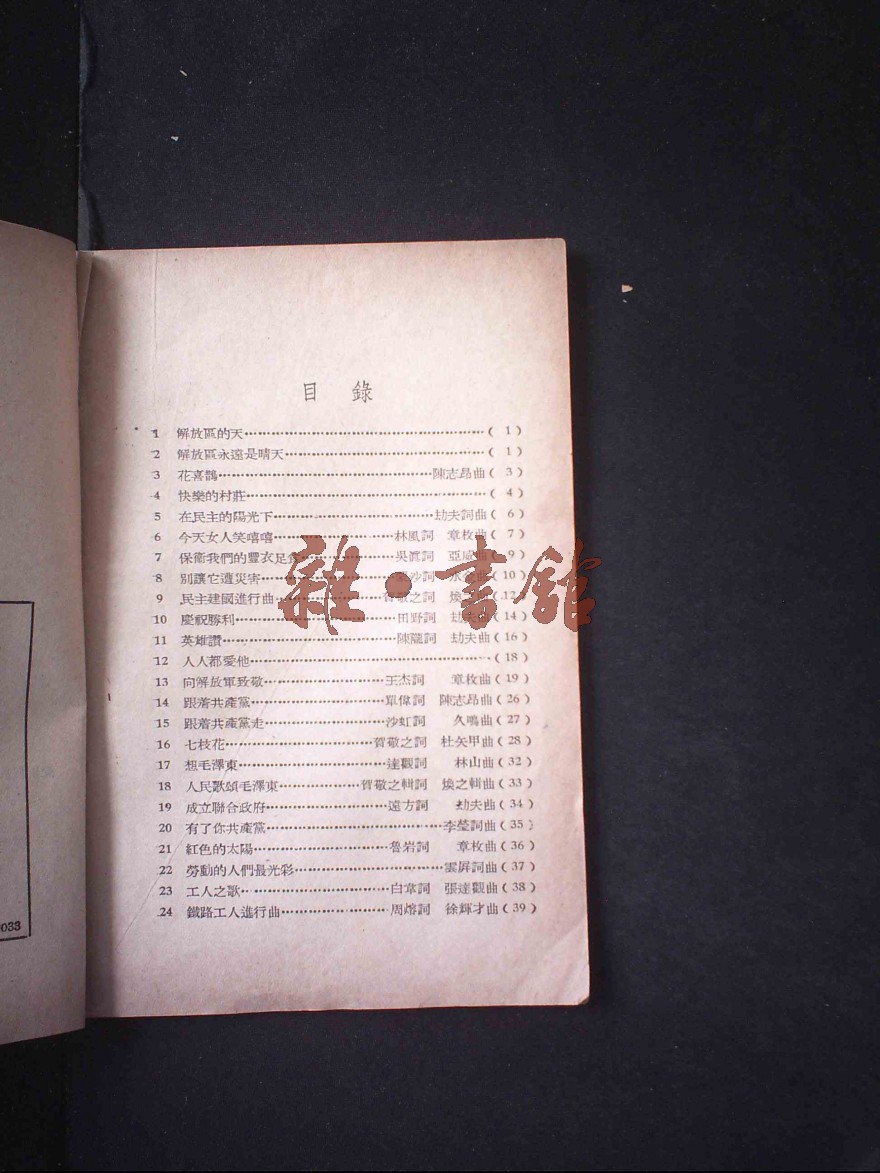 目 錄
1 解放區的天……( 1 )
2 解放區永遠是晴天……( 1 )
3 花喜鵲……陳志昂曲( 3 )
4 快樂的村莊……( 4 )
5 在民主的陽光下……劫夫詞曲( 6 )
6 今天女人笑嘻嘻……林風詞 章枚曲( 7 )
7 保衞我們的豐衣足食……吳眞詞 亞威曲( 9 )
8 別讓它遭災害……沙詞 曲(10 )
9 民主建國進行曲……賀敬之詞 煥之曲(12 )
10 慶祝勝利……田野詞 劫夫曲(14 )
11 英雄讚……陳隴詞 劫夫曲(16 )
12 人人都愛他……(18 )
13 向解放軍致敬……王杰詞 章枚曲(19 )
14 跟着共產黨……單偉詞 陳志昂曲(26 )
15 跟着共產黨走……沙虹詞 久鳴曲(27 )
16 七枝花……賀敬之詞 杜矢甲曲(28 )
17 想毛澤東……達觀詞 林山曲(32 )
18 人民歌頌毛澤東……賀敬之輯詞 煥之輯曲(33 )
19 成立聯合政府……遠方詞 劫夫曲(34 )
20 有了你共產黨……李瑩詞曲(35 )
21 紅色的太陽……魯岩詞 章枚曲(36 )
22 勞動的人們最光彩……雲屏詞曲(37 )
23 工人之歌……白韋詞 張達觀曲(38 )
24 鐵路工人進行曲……周熔詞 徐輝才曲(39 )
033
雜·書館